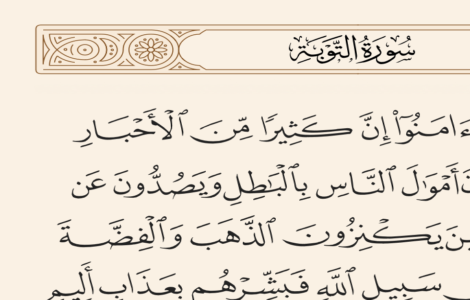 سُورَةُ التَّوْبَةِ
ءَامَنُوٓا۟ إِنَّ كَثِيرًا مِّنَ ٱلْأَحْبَارِ
أَمْوَٰلَ ٱلنَّاسِ بِٱلْبَٰطِلِ وَيَصُدُّونَ عَن
يَكْنِزُونَ ٱلذَّهَبَ وَٱلْفِضَّةَ
سَبِيلِ ٱللَّهِ فَبَشِّرْهُم بِعَذَابٍ أَلِيمٍ